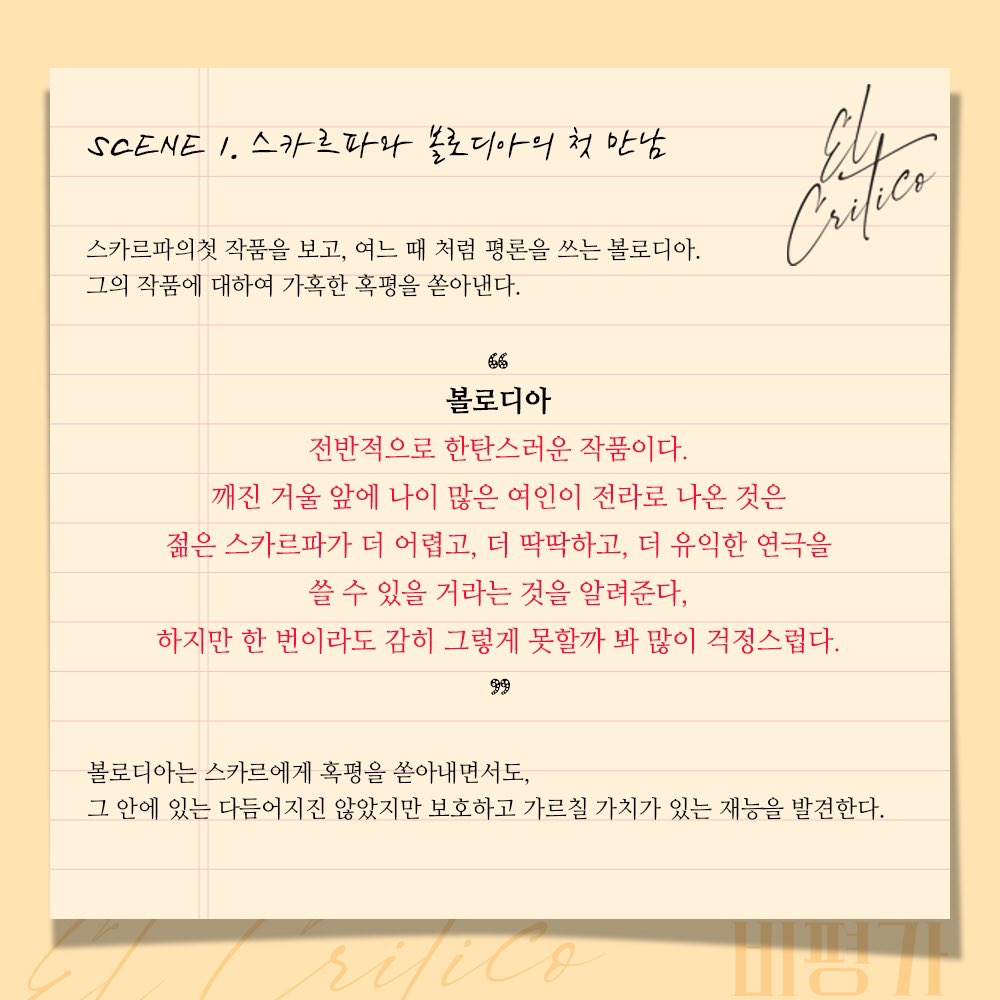 SCENE 1. 스카르파와 볼로디아의 첫 만남
El
Critico
스카르파의첫 작품을 보고, 여느 때 처럼 평론을 쓰는 볼로디아.
그의 작품에 대하여 가혹한 혹평을 쏟아낸다.
“
볼로디아
전반적으로 한탄스러운 작품이다.
깨진 거울 앞에 나이 많은 여인이 전라로 나온 것은
젊은 스카르파가 더 어렵고, 더 딱딱하고, 더 유익한 연극을
쓸 수 있을 거라는 것을 알려준다,
하지만 한 번이라도 감히 그렇게 못할까 봐 많이 걱정스럽다.
”
볼로디아는 스카르에게 혹평을 쏟아내면서도,
그 안에 있는 다듬어지진 않았지만 보호하고 가르칠 가치가 있는 재능을 발견한다.
El Critico
비평가